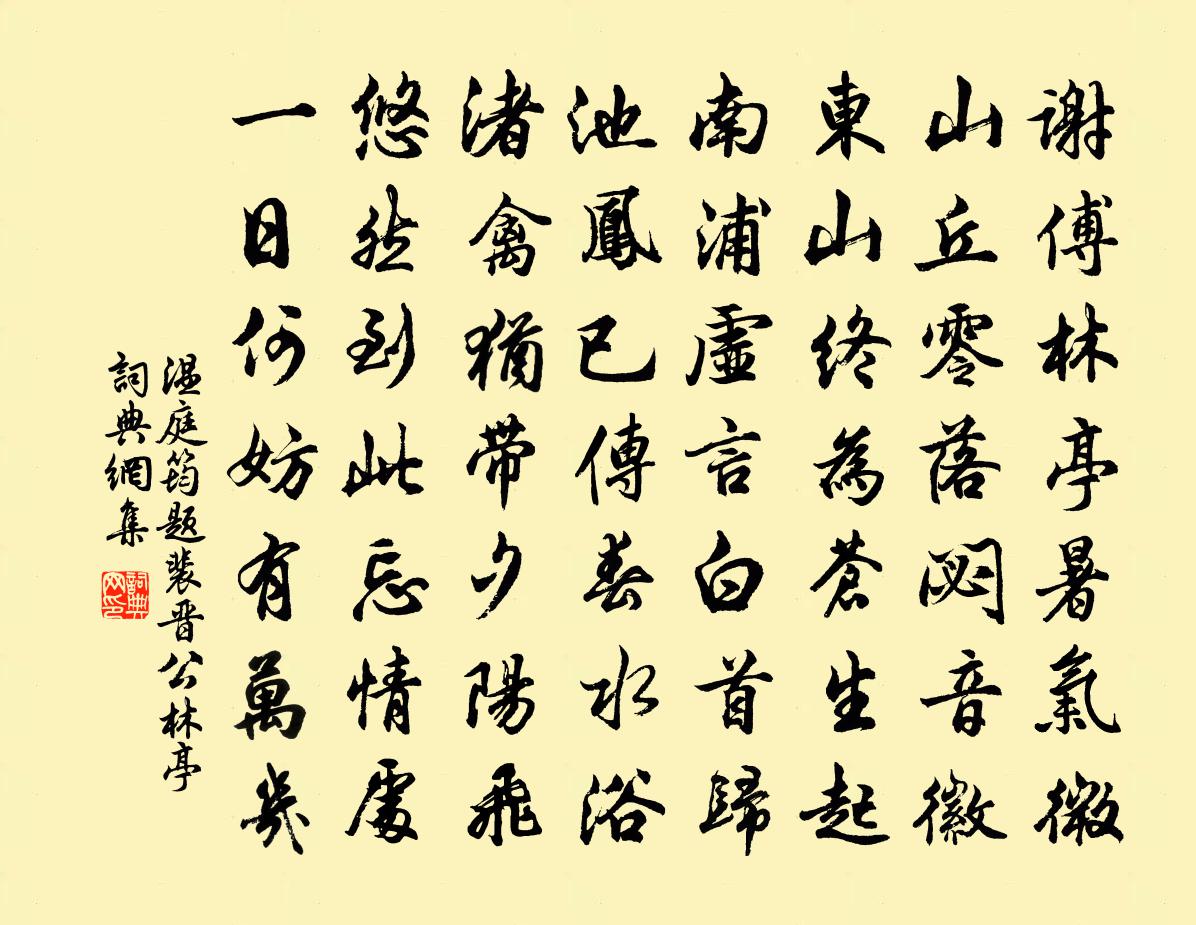 謝傅林亭暑氣微
山丘零落閟音徽
東山終為蒼生起
南浦虛言白首歸
池鳳已傳春水浴
渚禽猶帶夕陽飛
悠然到此忘情處
一日何妨有萬幾
温庭筠題裴晋公林亭
詞典網集
詞典网印